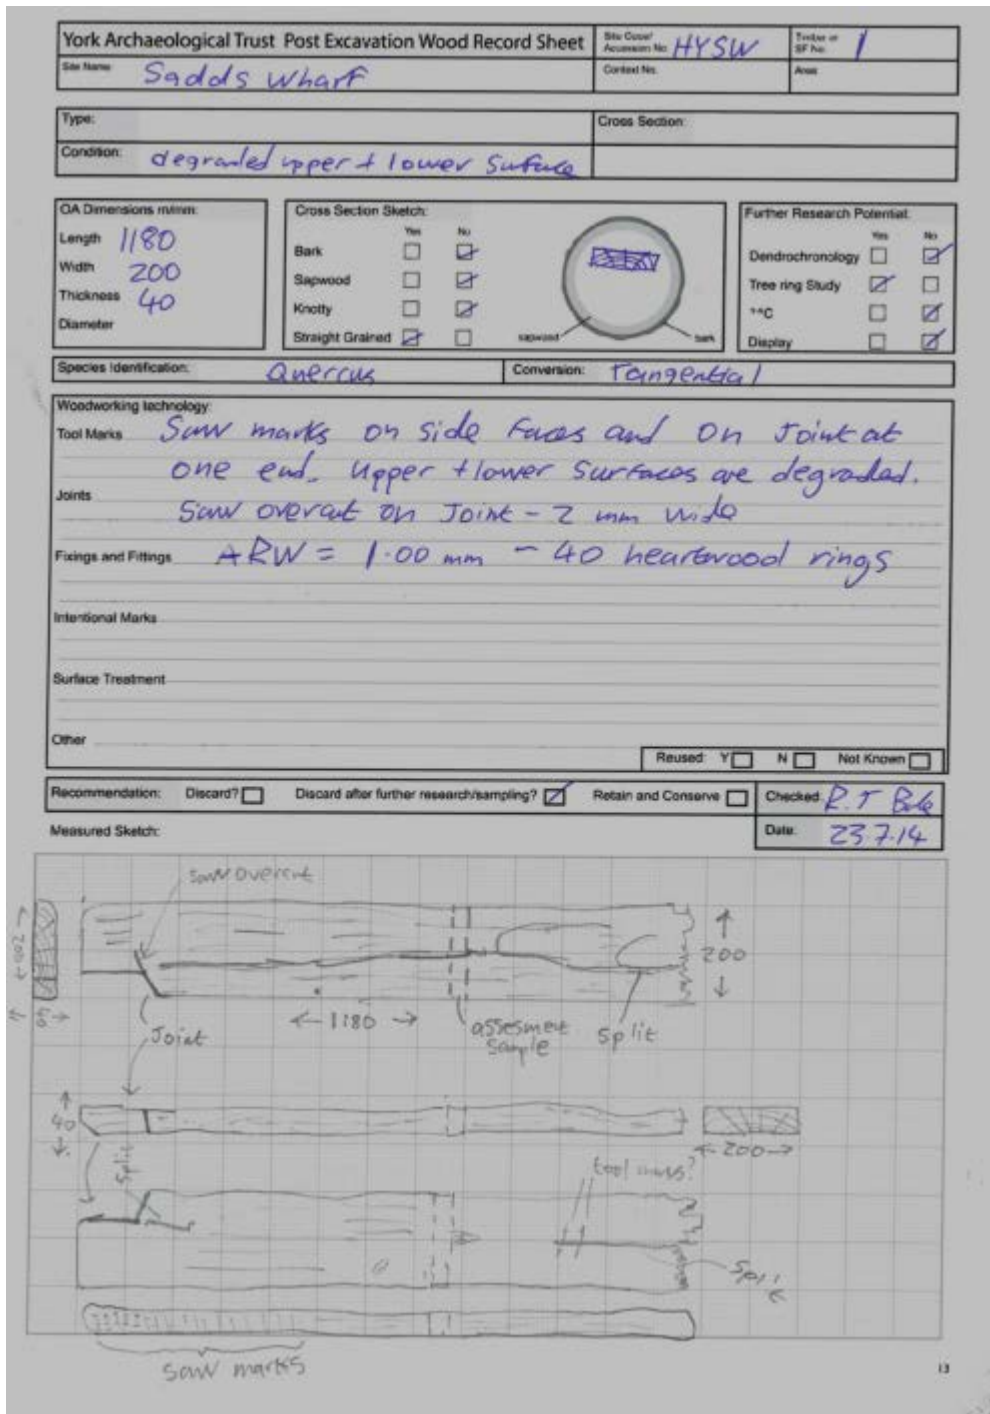 York Archaeological Trust Post Excavation Wood Record Sheet
Site Code/ Accession No. HYSW
Timber or SF No. 1
Site Name: Sadds Wharf
Context No.
Area
Type:
Cross Section:
Condition: degraded upper + lower Surface
OA Dimensions m/mm:
Length 1180
Width 200
Thickness 40
Diameter
Cross Section Sketch:
Yes No
Bark
Sapwood
Knotty
Straight Grained
sapwood
bark
Further Research Potential:
Yes No
Dendrochronology
Tree ring Study
14C
Display
Species Identification: Quercus
Conversion: Tangential
Woodworking technology:
Tool Marks Saw marks on side faces and on Joint at
one end. Upper + lower Surfaces are degraded.
Joints
Saw overcut on Joint - 2 mm wide
Fixings and Fittings ARW = 1.00 mm - 40 heartwood rings
Intentional Marks
Surface Treatment
Other
Reused: Y N Not Known
Recommendation: Discard? Discard after further research/sampling? Retain and Conserve
Checked: R.T
Date: 23.7.14
Measured Sketch:
Saw overcut
200
200
40
1180
Joint
assesment
Sample
Split
40
200
Split
tool marks?
Split
Saw marks
13